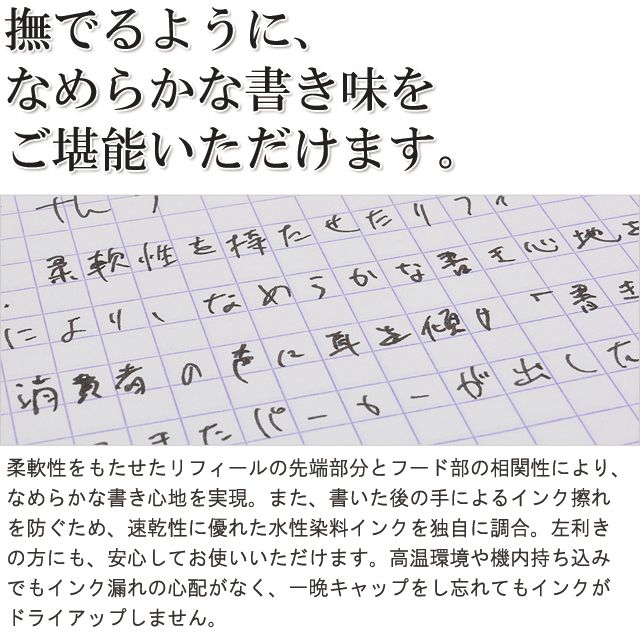 撫でるように、
なめらかな書き味を
ご堪能いただけます。
柔軟性を持たせたリフィ
により、なめらかな書き心地を
消費者の声に耳を傾け「書き
きたパーカーが出した
柔軟性をもたせたリフィールの先端部分とフード部の相関性により、
なめらかな書き心地を実現。また、書いた後の手によるインク擦れ
を防ぐため、速乾性に優れた水性染料インクを独自に調合。左利き
の方にも、安心してお使いいただけます。高温環境や機内持ち込み
でもインク漏れの心配がなく、一晩キャップをし忘れてもインクが
ドライアップしません。